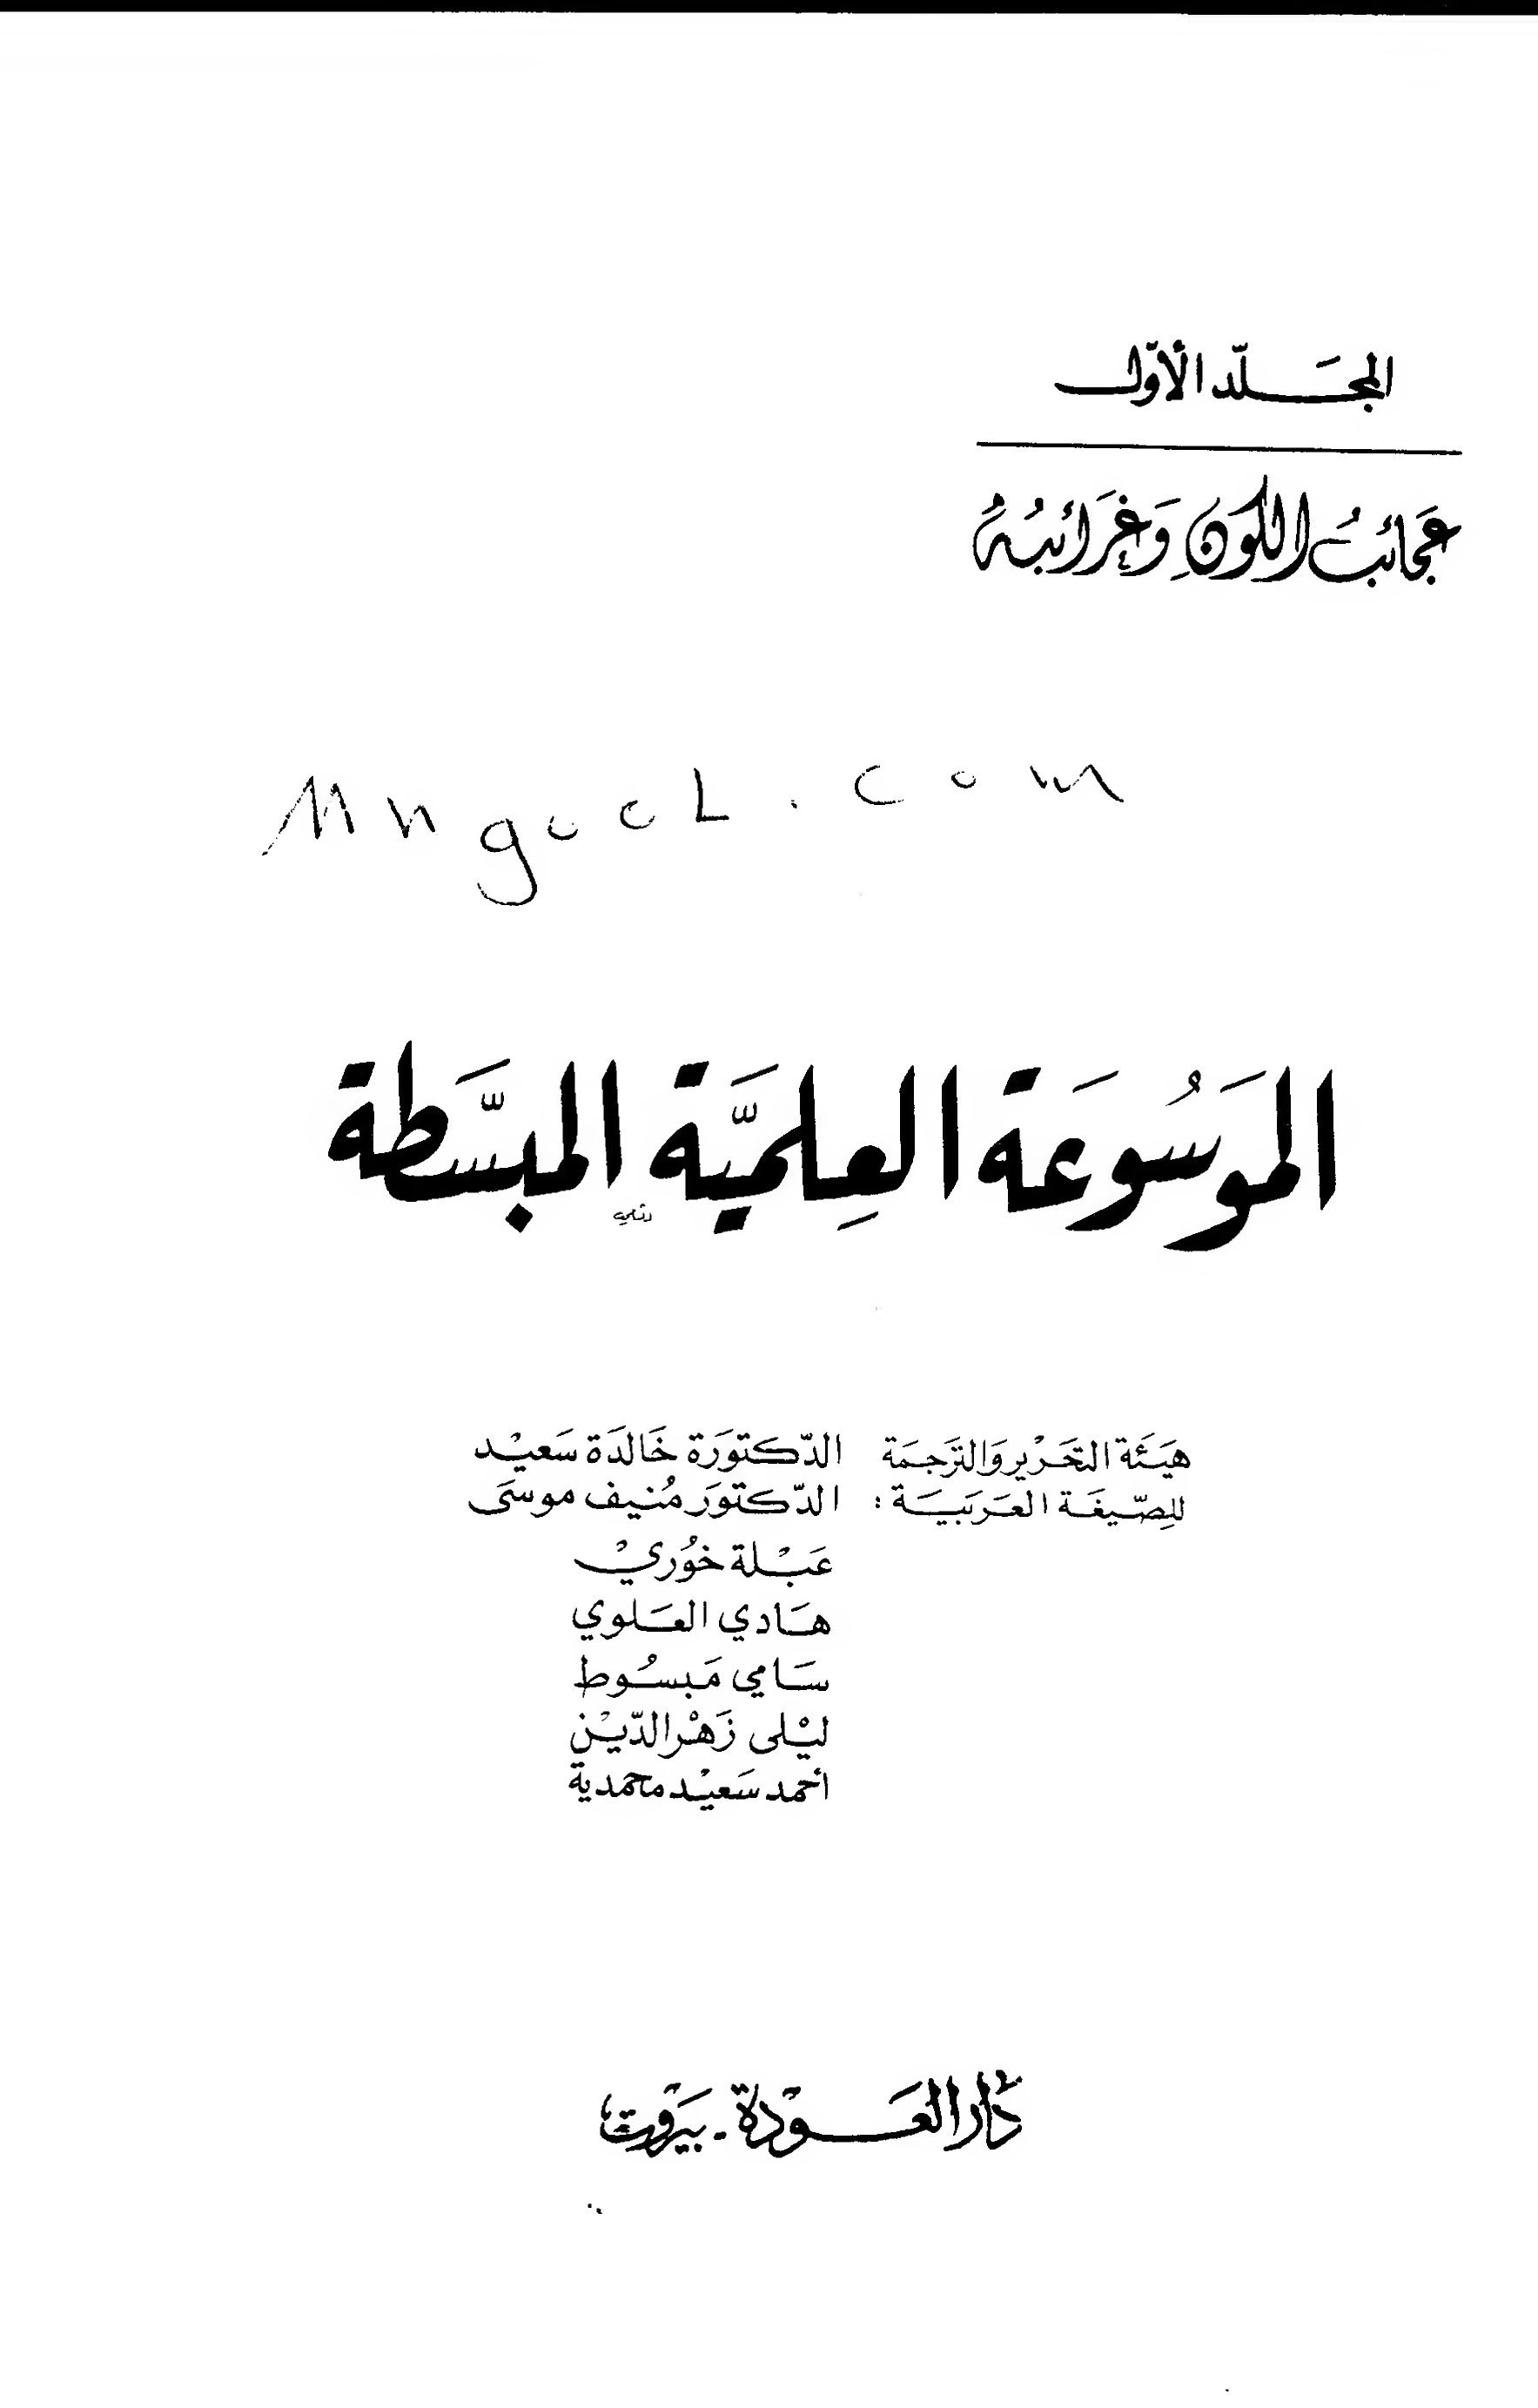 المجَلّد الأوّل
عجَائبُ الكونِ وَغرَائبُهُ
الموَسُوعَة العِلميَّة المبسَّطة
هَيئَة التحَرْير وَالترَجمَة الدّكتورَة خَالدَة سَعيْد
للِصّيغَة العَرَبيَة : الدّكتوَر مُنيف موسَى
عَبْلة خوُريْ
هَادي العَلوي
سَامي مَبسُوط
ليْلى زَهْر الدّيْن
أحمد سَعيْد محمدية
دَار العَودْة - بيَروْت